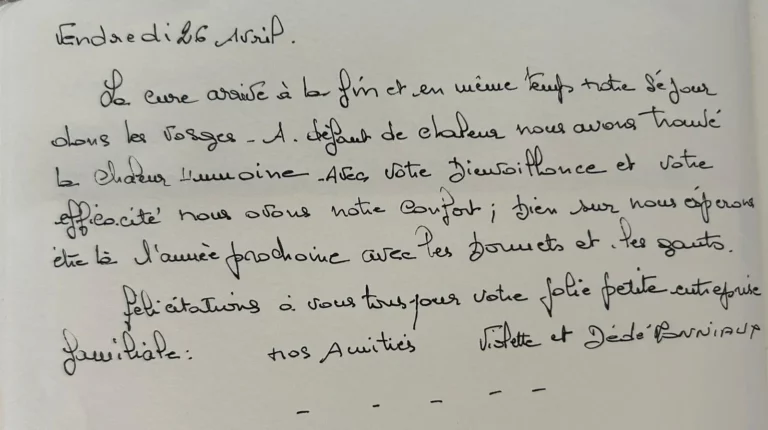 Vendredi 26 Avril.
La cure arrive à la fin et en même temps notre séjour
dans les Vosges - A défaut de chaleur nous avons trouvé
la chaleur Humaine - Avec votre Bienveillance et votre
efficacité nous avons notre confort ; Bien sur nous espérons
être là l'année prochaine avec les bonnets et les gants.
félicitations à vous tous pour votre jolie petite entreprise
familiale : nos Amitiés Violette et Dédé